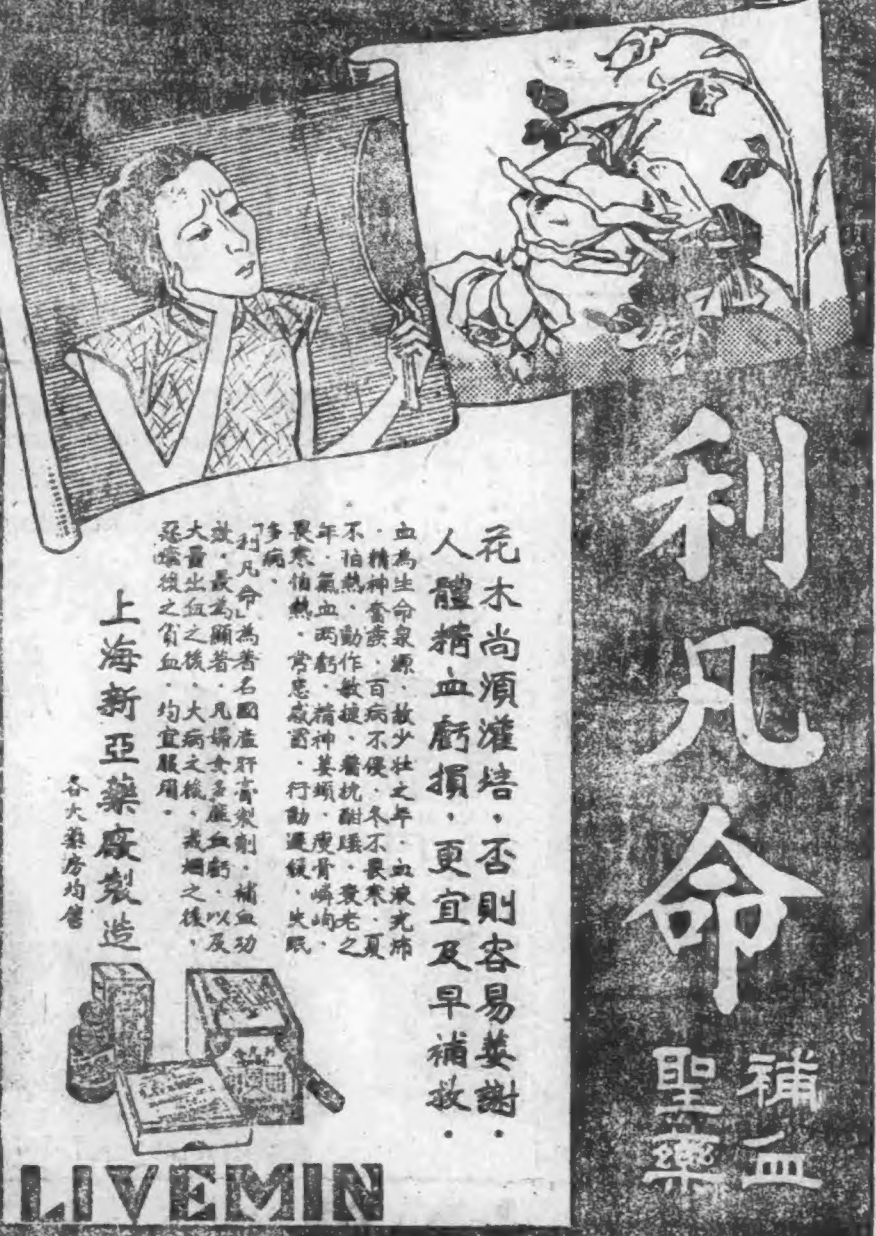 利凡命
補血
聖藥
花木尚須灌培·否則容易萎謝·
人體精血虧損·更宜及早補救·
血為生命泉源·故少壯之年·血液充沛
·精神奮發·百病不侵·冬不畏寒·夏
不怕熱·動作敏捷·醫枕酣睡·衰老之
年·氣血兩虧·精神萎頓·瘦骨嶙峋·
畏寒怕熱·常患感冒·行動遲緩·失眠
多病·
「利凡命」為著名國產肝膏製劑·補血功
效·最為顯著·凡婦女多產血虧·以及
大量出血之後·大病之後·戒烟之後·
惡瘧後之貧血·均宜服用·
上海新亞藥廠製造
各大藥房均售
LIVEMIN